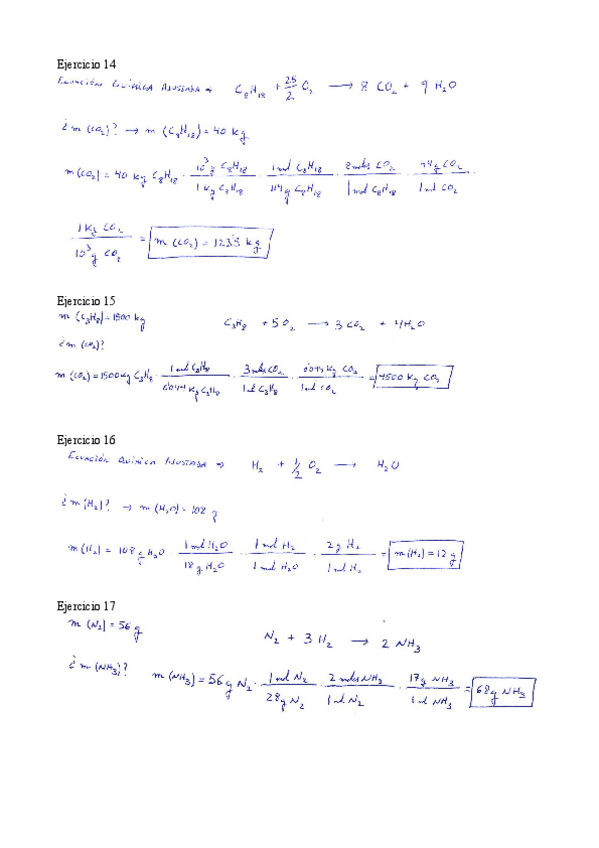 Ejercicio 14
Ecuación Química Ajustada → C₈H₁₈ + 25/2 O₂ → 8 CO₂ + 9 H₂O
¿m (CO₂)? → m (C₈H₁₈) = 40 kg
m(CO₂) = 40 kg C₈H₁₈ · 10³ g C₈H₁₈ / 1 kg C₈H₁₈ · 1 mol C₈H₁₈ / 114 g C₈H₁₈ · 8 moles CO₂ / 1 mol C₈H₁₈ · 44 g CO₂ / 1 mol CO₂ ·
1 kg CO₂ / 10³ g CO₂ = m (CO₂) = 123'5 kg
Ejercicio 15
m (C₃H₈) = 1500 kg C₃H₈ + 5 O₂ → 3 CO₂ + 4 H₂O
¿m (CO₂)?
m (CO₂) = 1500 kg C₃H₈ · 1 mol C₃H₈ / 0'044 kg C₃H₈ · 3 moles CO₂ / 1 mol C₃H₈ · 0'044 kg CO₂ / 1 mol CO₂ = 4500 kg CO₂
Ejercicio 16
Ecuación Química Ajustada → H₂ + 1/2 O₂ → H₂O
¿m (H₂)? → m (H₂O) = 108 g
m(H₂) = 108 g H₂O · 1 mol H₂O / 18 g H₂O · 1 mol H₂ / 1 mol H₂O · 2 g H₂ / 1 mol H₂ = m(H₂) = 12 g
Ejercicio 17
m (N₂) = 56 g N₂ + 3 H₂ → 2 NH₃
¿m (NH₃)? m (NH₃) = 56 g N₂ · 1 mol N₂ / 28 g N₂ · 2 moles NH₃ / 1 mol N₂ · 17 g NH₃ / 1 mol NH₃ = 68 g NH₃